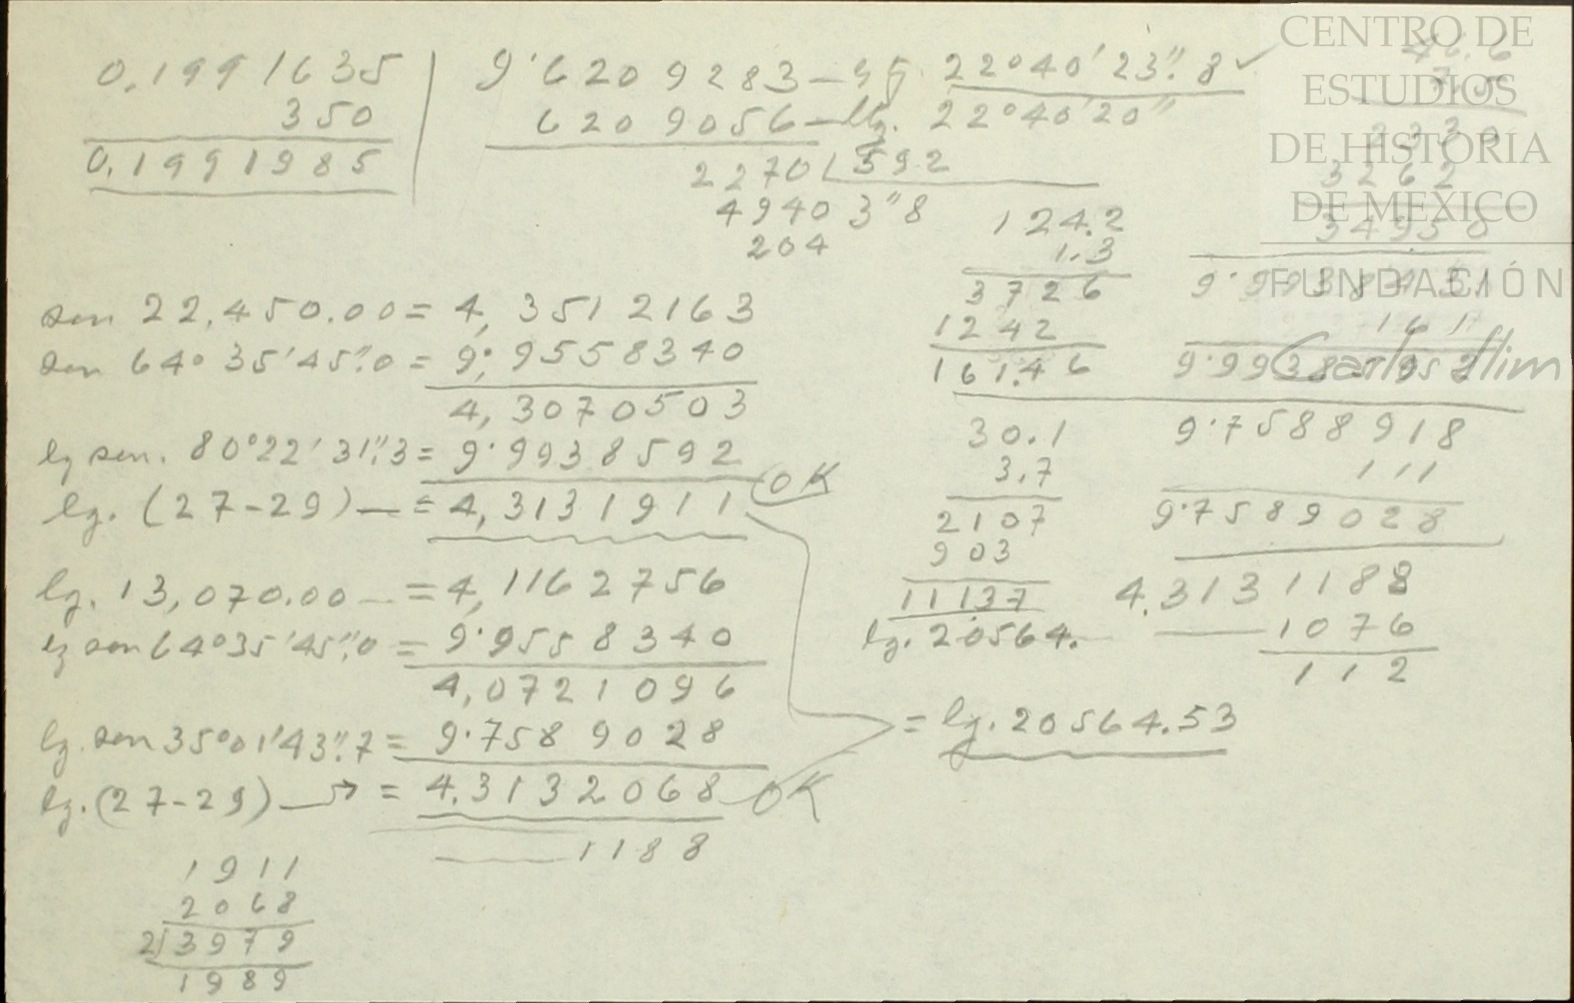 0,1991635
350
0,1991985
9·6209283 — 22°40'23"8 ✓
6209056 — lg. 22°40'20"
2270 592
4940 3"8
204
sen 22,450.00 = 4,3512163
sen 64°35'45"0 = 9·9558340
4,3070503
lg sen. 80°22'31"3 = 9·9938592
lg. (27-29) — = 4,3131911 OK
lg. 13,070.00 — = 4,1162756
lg sen 64°35'45"0 = 9·9558340
4,0721096
lg. sen 35°01'43"7 = 9·7589028
lg. (27-29) → = 4.3132068 OK
1188
1911
2068
2)3979
1989
124.2
1.3
3726
1242
161.46
30.1
3.7
2107
903
11137
lg. 20564.
= lg. 20564.53
2330
3262
34950
161
9·7588918
111
9·7589028
4.3131188
1076
112
CENTRO DE
ESTUDIOS
DE HISTORIA
DE MÉXICO
FUNDACIÓN
Carlos Slim